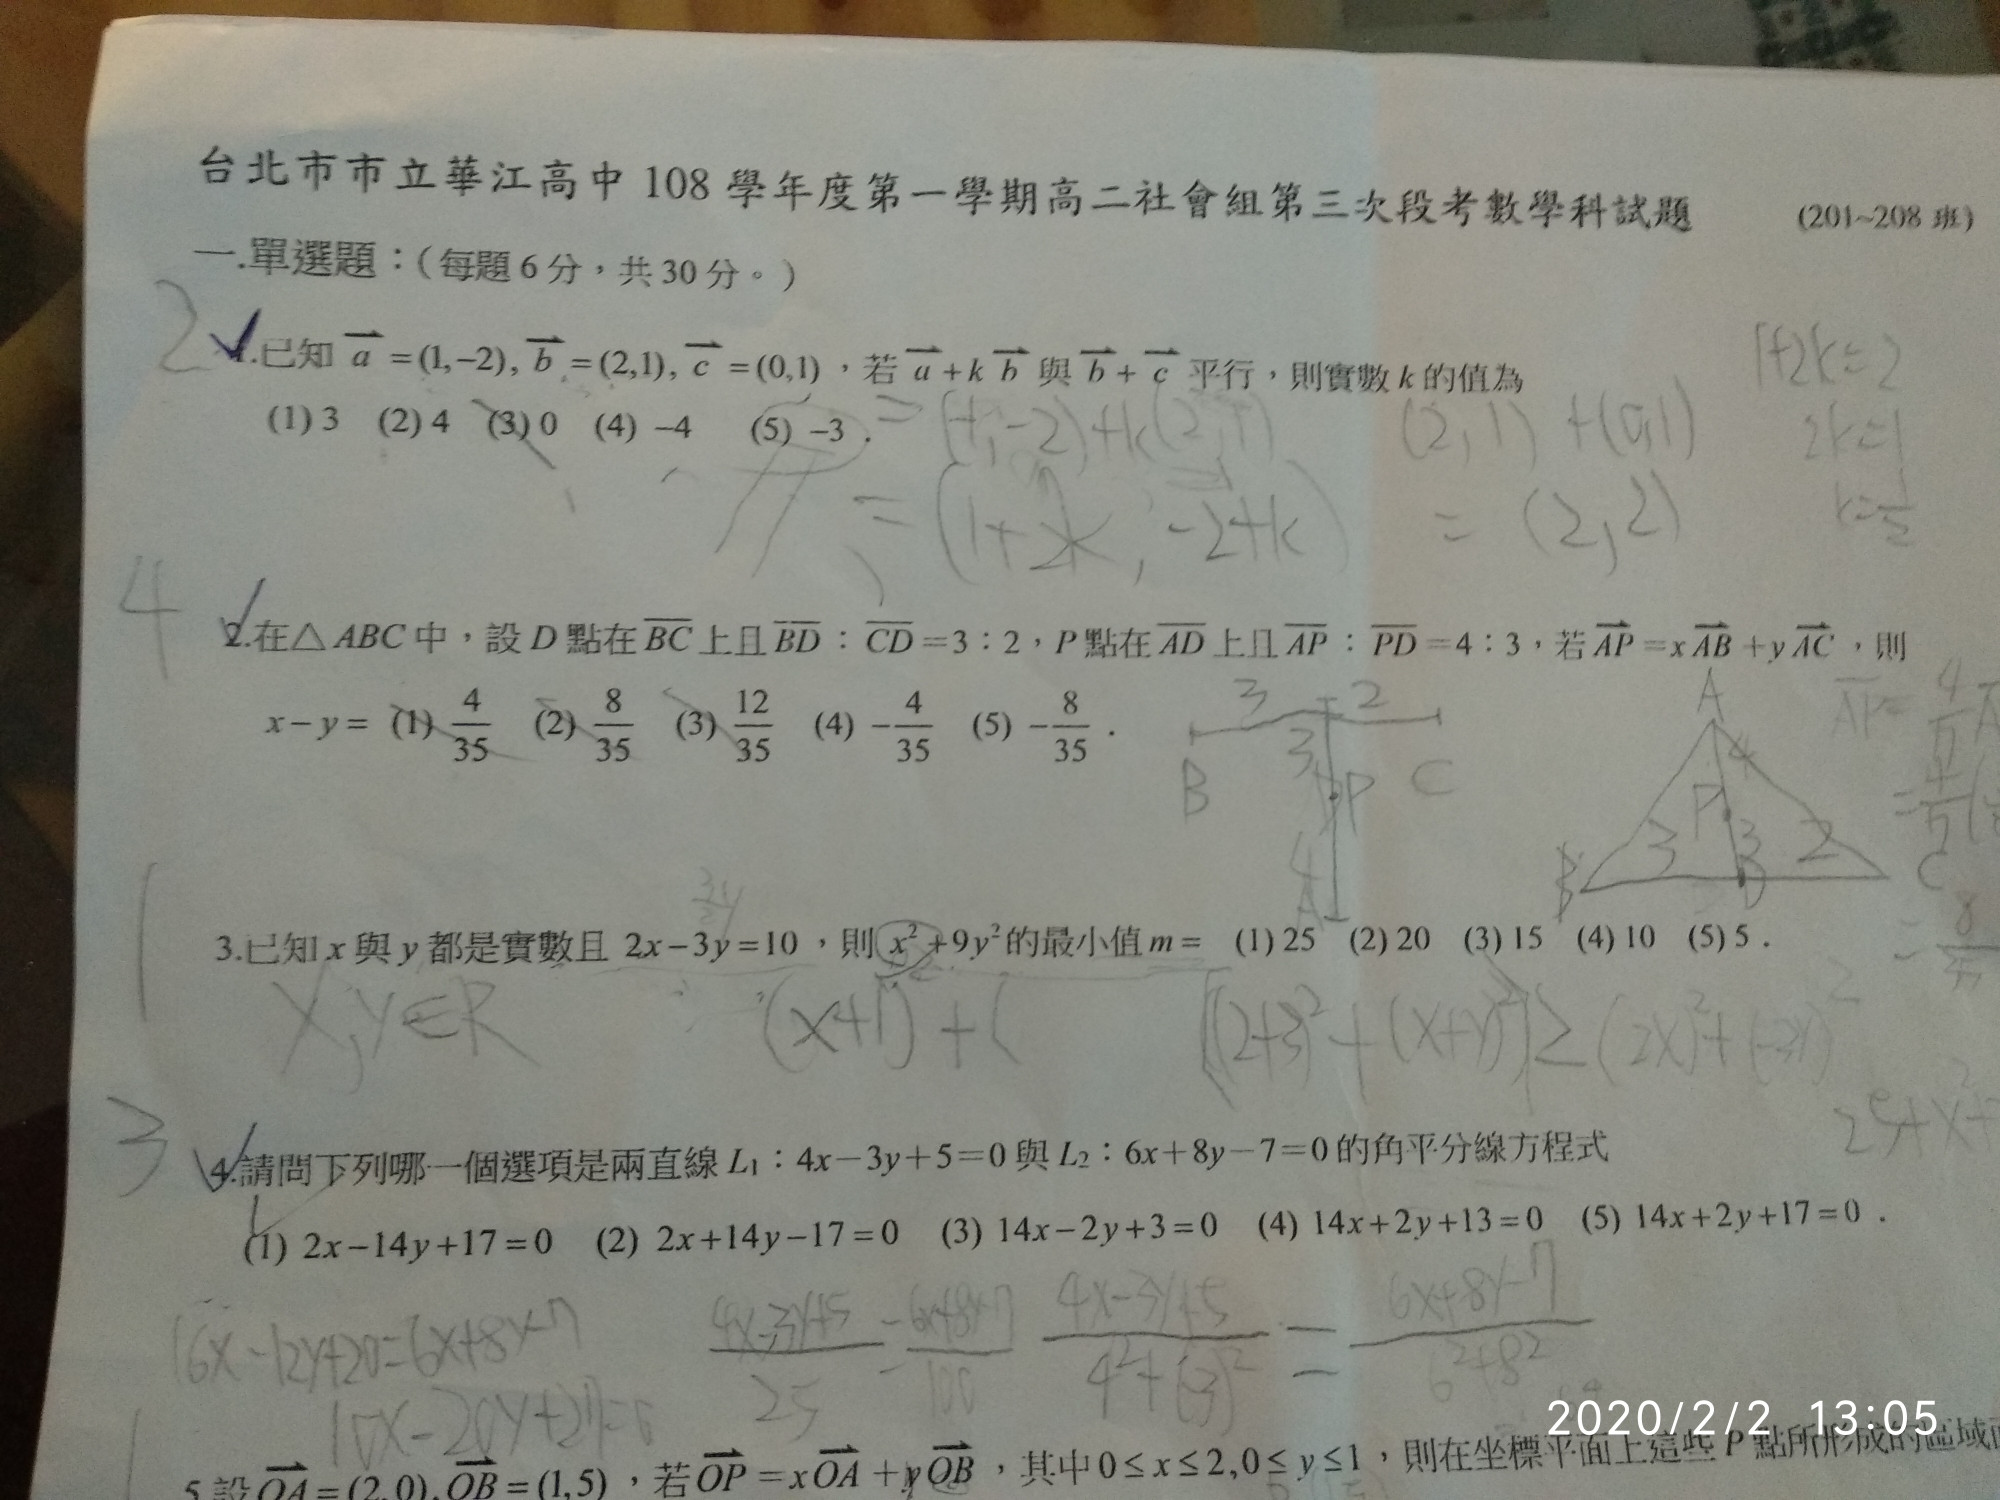 台北市市立華江高中 108 學年度第一學期高二社會組第三次段考數學科試題 (201~208 班)
一.單選題:(每題 6 分,共 30 分。)
2
1.已知 a =(1,−2), b =(2,1), c =(0,1),若 a + k b 與 b + c 平行,則實數 k 的值為
1+2k=2
(1) 3 (2) 4 (3) 0 (4) −4 (5) −3 .
= (1,-2)+k(2,1) (2,1)+(0,1)
2k=1
= (1+2k, -2+k) = (2,2)
4
2.在△ABC 中,設 D 點在 BC 上且 BD : CD =3:2,P 點在 AD 上且 AP : PD =4:3,若 AP =x AB +y AC ,則
x−y= (1) 4/35 (2) 8/35 (3) 12/35 (4) −4/35 (5) −8/35 .
3 2
3 P
B C
4
A
A
4
P
3 3 2
B D C
1
3.已知 x 與 y 都是實數且 2x−3y=10,則 x²+9y² 的最小值 m= (1) 25 (2) 20 (3) 15 (4) 10 (5) 5 .
x,y∈R (x+1)+( [(2+3)²+(x+y)²]≥(2x)²+(-3y)²
3
4.請問下列哪一個選項是兩直線 L₁:4x−3y+5=0 與 L₂:6x+8y−7=0 的角平分線方程式
(1) 2x−14y+17=0 (2) 2x+14y−17=0 (3) 14x−2y+3=0 (4) 14x+2y+13=0 (5) 14x+2y+17=0 .
16x-12y+20=6x+8y-7 4x-3y+5/25 = 6x+8y-7/100 4x-3y+5/4²+(-3)² = 6x+8y-7/6²+8²
10x-20y+27=0
2020/2/2 13:05
5.設 OA =(2,0), OB =(1,5),若 OP =x OA +y OB ,其中 0≤x≤2,0≤y≤1,則在坐標平面上這些 P 點所形成的區域